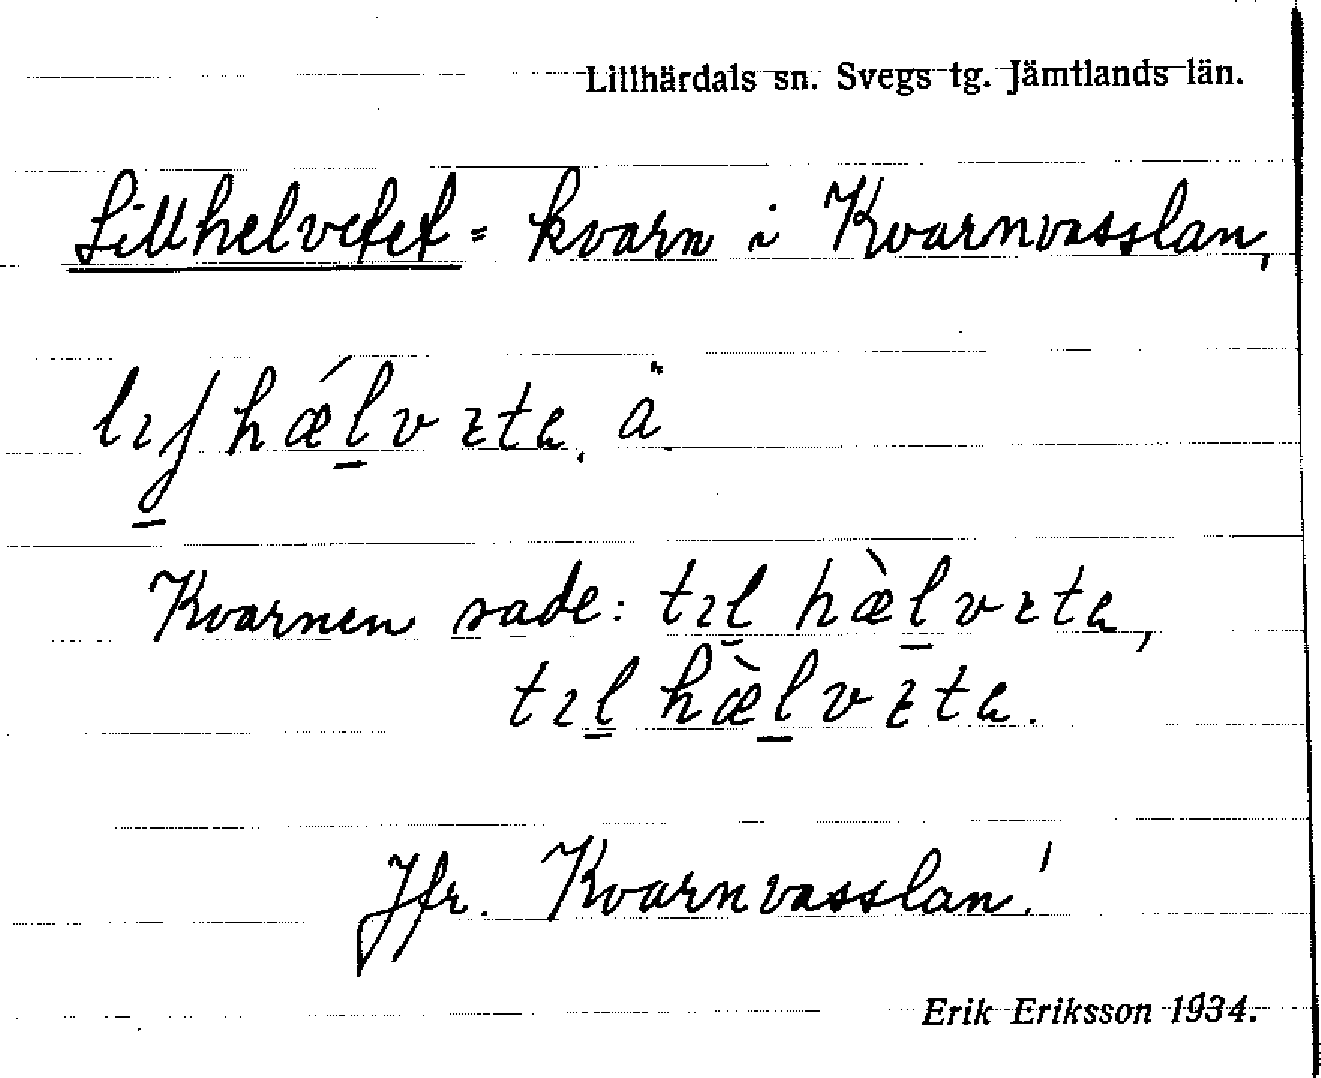 Lillhärdals sn. Svegs tg. Jämtlands län.
Lillhelvetet = kvarn i Kvarnvasslan,
Kvarnen sade: tıl hæ̀lvıta,
tıl hæ̀lvıta.
Jfr. Kvarnvasslan!
Erik Eriksson 1934.